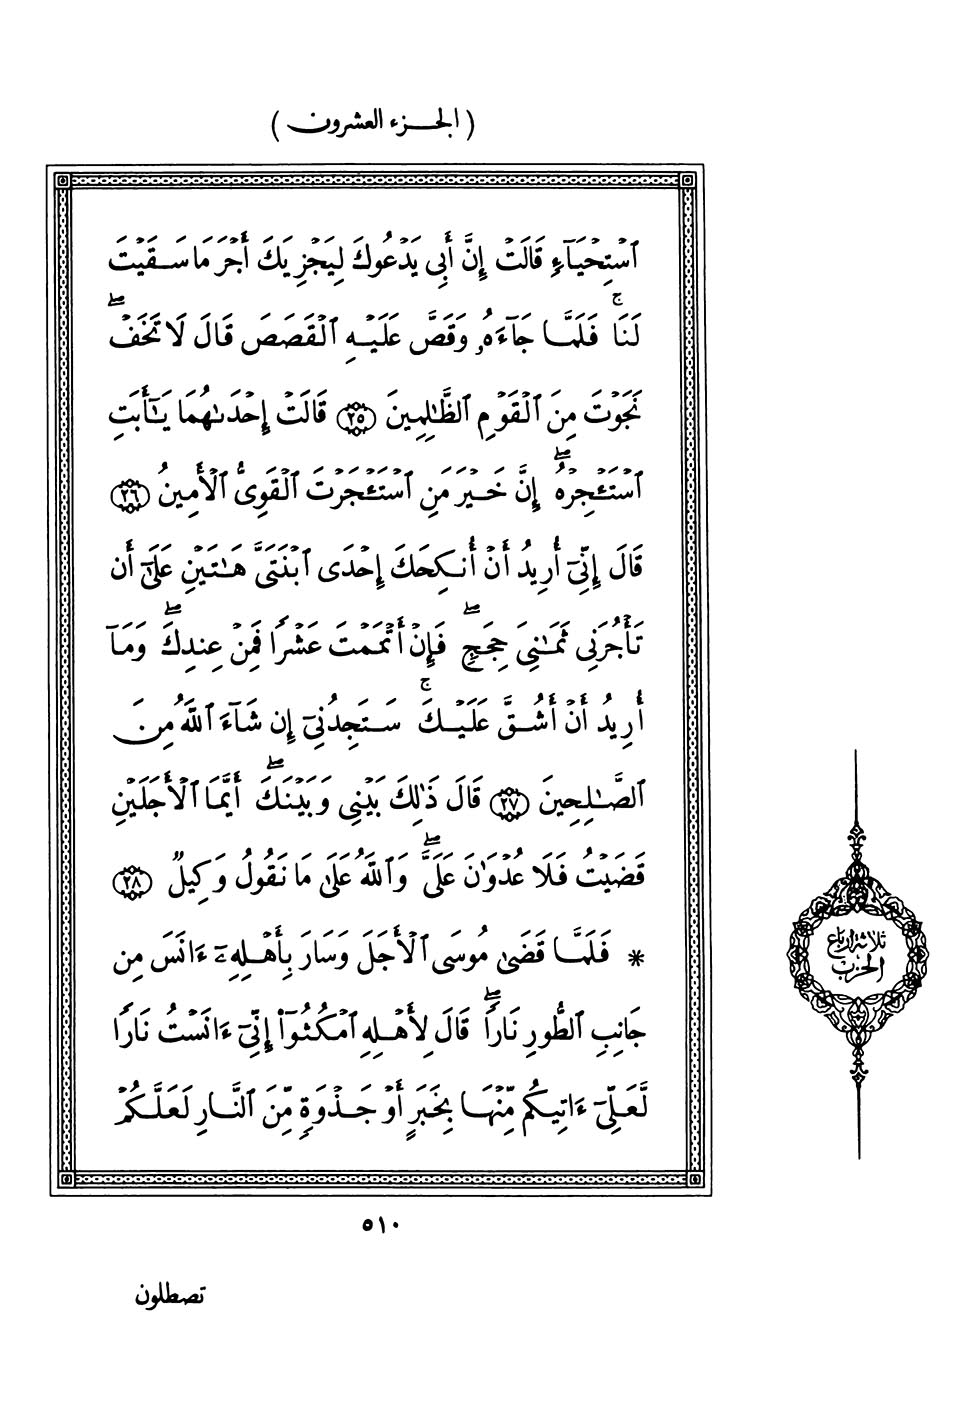 ( الجزء العشرون )
ٱسْتِحْيَآءٍ قَالَتْ إِنَّ أَبِى يَدْعُوكَ لِيَجْزِيَكَ أَجْرَ مَا سَقَيْتَ
لَنَا ۚ فَلَمَّا جَآءَهُۥ وَقَصَّ عَلَيْهِ ٱلْقَصَصَ قَالَ لَا تَخَفْ ۖ
نَجَوْتَ مِنَ ٱلْقَوْمِ ٱلظَّٰلِمِينَ ٢٥ قَالَتْ إِحْدَىٰهُمَا يَٰٓأَبَتِ
ٱسْتَـْٔجِرْهُ ۖ إِنَّ خَيْرَ مَنِ ٱسْتَـْٔجَرْتَ ٱلْقَوِىُّ ٱلْأَمِينُ ٢٦
قَالَ إِنِّىٓ أُرِيدُ أَنْ أُنكِحَكَ إِحْدَى ٱبْنَتَىَّ هَٰتَيْنِ عَلَىٰٓ أَن
تَأْجُرَنِى ثَمَٰنِىَ حِجَجٍ ۖ فَإِنْ أَتْمَمْتَ عَشْرًا فَمِنْ عِندِكَ ۖ وَمَآ
أُرِيدُ أَنْ أَشُقَّ عَلَيْكَ ۚ سَتَجِدُنِىٓ إِن شَآءَ ٱللَّهُ مِنَ
ٱلصَّٰلِحِينَ ٢٧ قَالَ ذَٰلِكَ بَيْنِى وَبَيْنَكَ ۖ أَيَّمَا ٱلْأَجَلَيْنِ
قَضَيْتُ فَلَا عُدْوَٰنَ عَلَىَّ ۖ وَٱللَّهُ عَلَىٰ مَا نَقُولُ وَكِيلٌ ٢٨
* فَلَمَّا قَضَىٰ مُوسَى ٱلْأَجَلَ وَسَارَ بِأَهْلِهِۦٓ ءَانَسَ مِن
جَانِبِ ٱلطُّورِ نَارًا ۖ قَالَ لِأَهْلِهِ ٱمْكُثُوٓا۟ إِنِّىٓ ءَانَسْتُ نَارًا
لَّعَلِّىٓ ءَاتِيكُم مِّنْهَا بِخَبَرٍ أَوْ جَذْوَةٍ مِّنَ ٱلنَّارِ لَعَلَّكُمْ
ثلاثة أرباع
الحزب
٥١٠
تصطلون